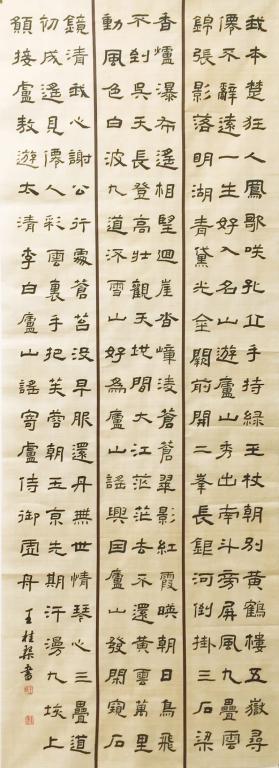 我本楚狂人鳳歌咲孔丘手持綠玉杖朝別黃鶴樓五嶽尋
僊不辭遠一生好入名山遊廬山秀出南斗旁屏風九疊雲
錦張影落明湖青黛光金闕前開二峯長銀河倒掛三石梁
香爐瀑布遙相望迴崖沓嶂淩蒼蒼翠影紅霞暎朝日鳥飛
不到吳天長登高壯觀天地間大江茫茫去不還黃雲萬里
動風色白波九道流雪山好為廬山謠興因廬山發閑窺石
鏡清我心謝公行處蒼苔沒早服還丹無世情琴心三疊道
初成遙見僊人彩雲裏手把芙蓉朝玉京先期汗漫九垓上
願接盧敖遊太清李白廬山謠寄盧侍御虛舟王桂榮書